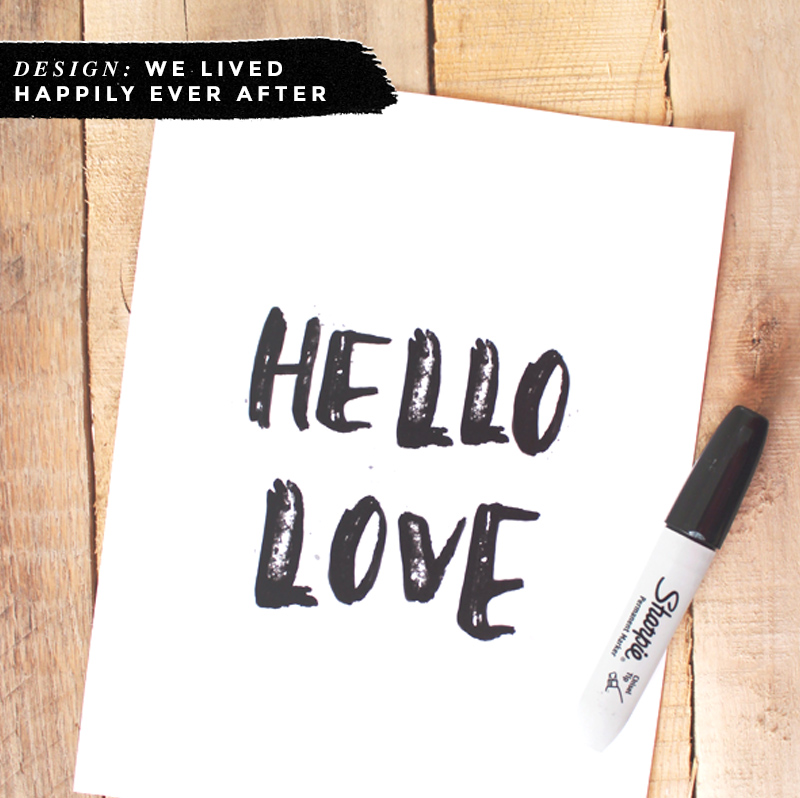 DESIGN: WE LIVED
HAPPILY EVER AFTER
HELLO
LOVE
Sharpie®
Permanent Marker
Chisel
Tip